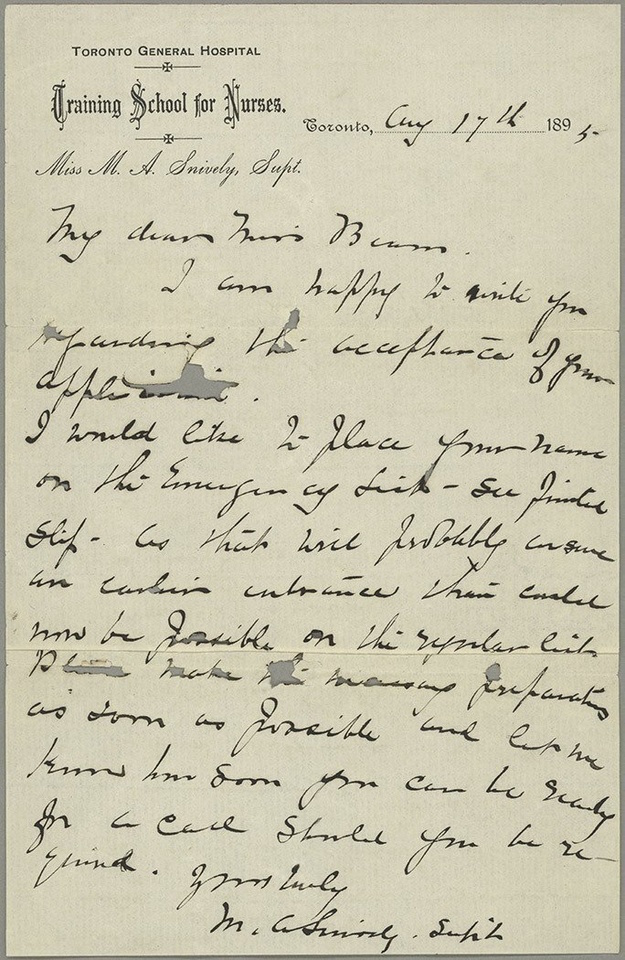 TORONTO GENERAL HOSPITAL
Training School for Nurses.
Toronto, Aug 17th 1895
Miss M. A. Snively, Supt.
My dear Miss Beam.
I am happy to write you
regarding the acceptance of your
application.
I would like to place your name
on the Emergency List - see printed
slip - as that will probably ensure
an earlier entrance than could
now be possible on the regular list.
Please make the necessary preparations
as soon as possible and let me
know how soon you can be ready
for a call should you be re-
quired.
Yours truly
M. A. Snively. Supt